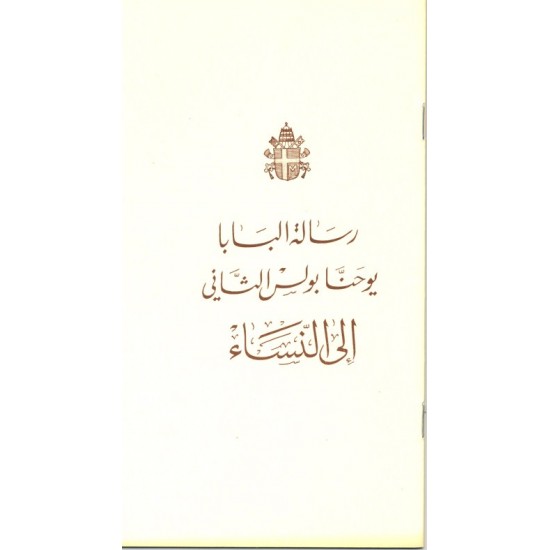 رسالة البابا
يوحنَّا بولس الثَّاني
إلى النِّسَاءْ